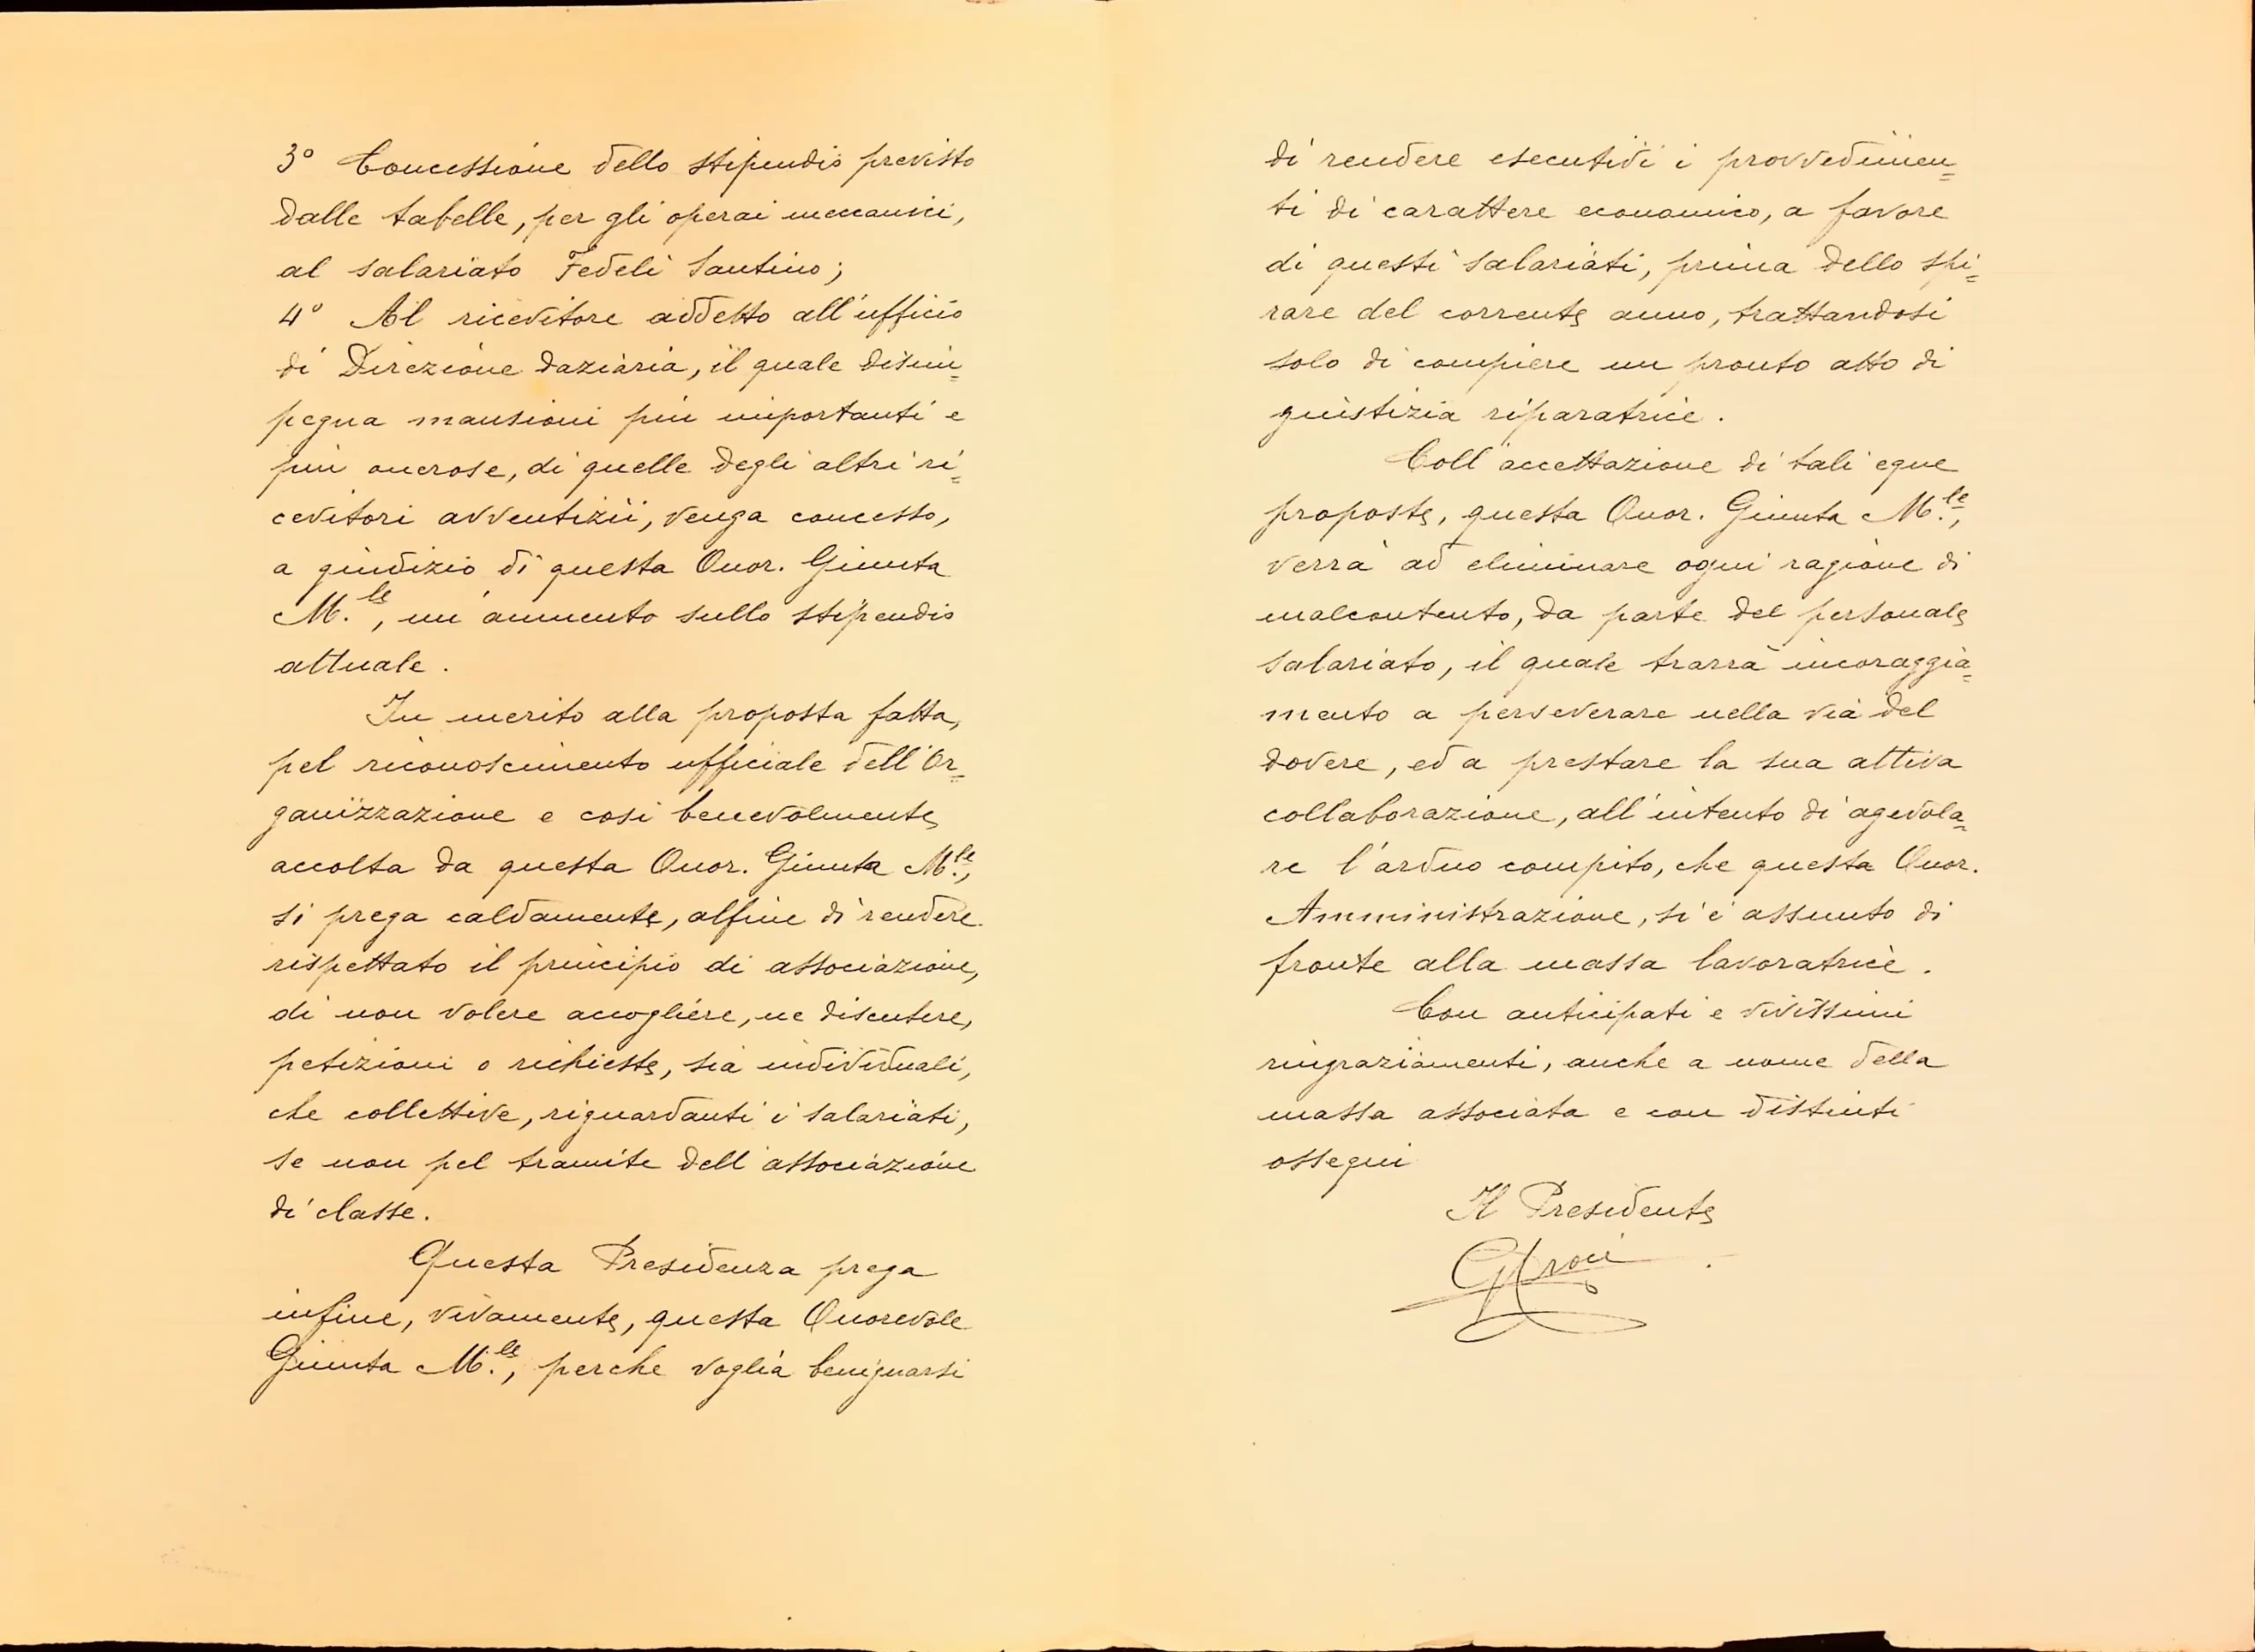 3° Concessione dello stipendio previsto
dalle tabelle, per gli operai meccanici,
al salariato Fedeli Santino;
4° Al ricevitore addetto all'ufficio
di Direzione daziaria, il quale disim=
pegna mansioni più importanti e
più onerose, di quelle degli altri ri=
cevitori avventizii, venga concesso,
a giudizio di questa Onor. Giunta
M.le, un aumento sullo stipendio
attuale.
In merito alla proposta fatta,
pel riconoscimento ufficiale dell'Or=
ganizzazione e così benevolmente
accolta da questa Onor. Giunta M.le,
si prega caldamente, alfine di rendere
rispettato il principio di associazione,
di non volere accogliere, ne discutere,
petizioni o richieste, sia individuali,
che collettive, riguardanti i salariati,
se non pel tramite dell'associazione
di classe.
Questa Presidenza prega
infine, vivamente, questa Onorevole
Giunta M.le, perche voglia benignarsi
di rendere esecutivi i provvedimen=
ti di carattere economico, a favore
di questi salariati, prima dello spi=
rare del corrente anno, trattandosi
solo di compiere un pronto atto di
giustizia riparatrice.
Coll'accettazione di tali eque
proposte, questa Onor. Giunta M.le,
verrà ad eliminare ogni ragione di
malcontento, da parte del personale
salariato, il quale trarrà incoraggia=
mento a perseverare nella via del
dovere, ed a prestare la sua attiva
collaborazione, all'intento di agevola=
re l'arduo compito, che questa Onor.
Amministrazione, si è assunto di
fronte alla massa lavoratrice.
Con anticipati e vivissimi
ringraziamenti, anche a nome della
massa associata e con distinti
ossequi
Il Presidente